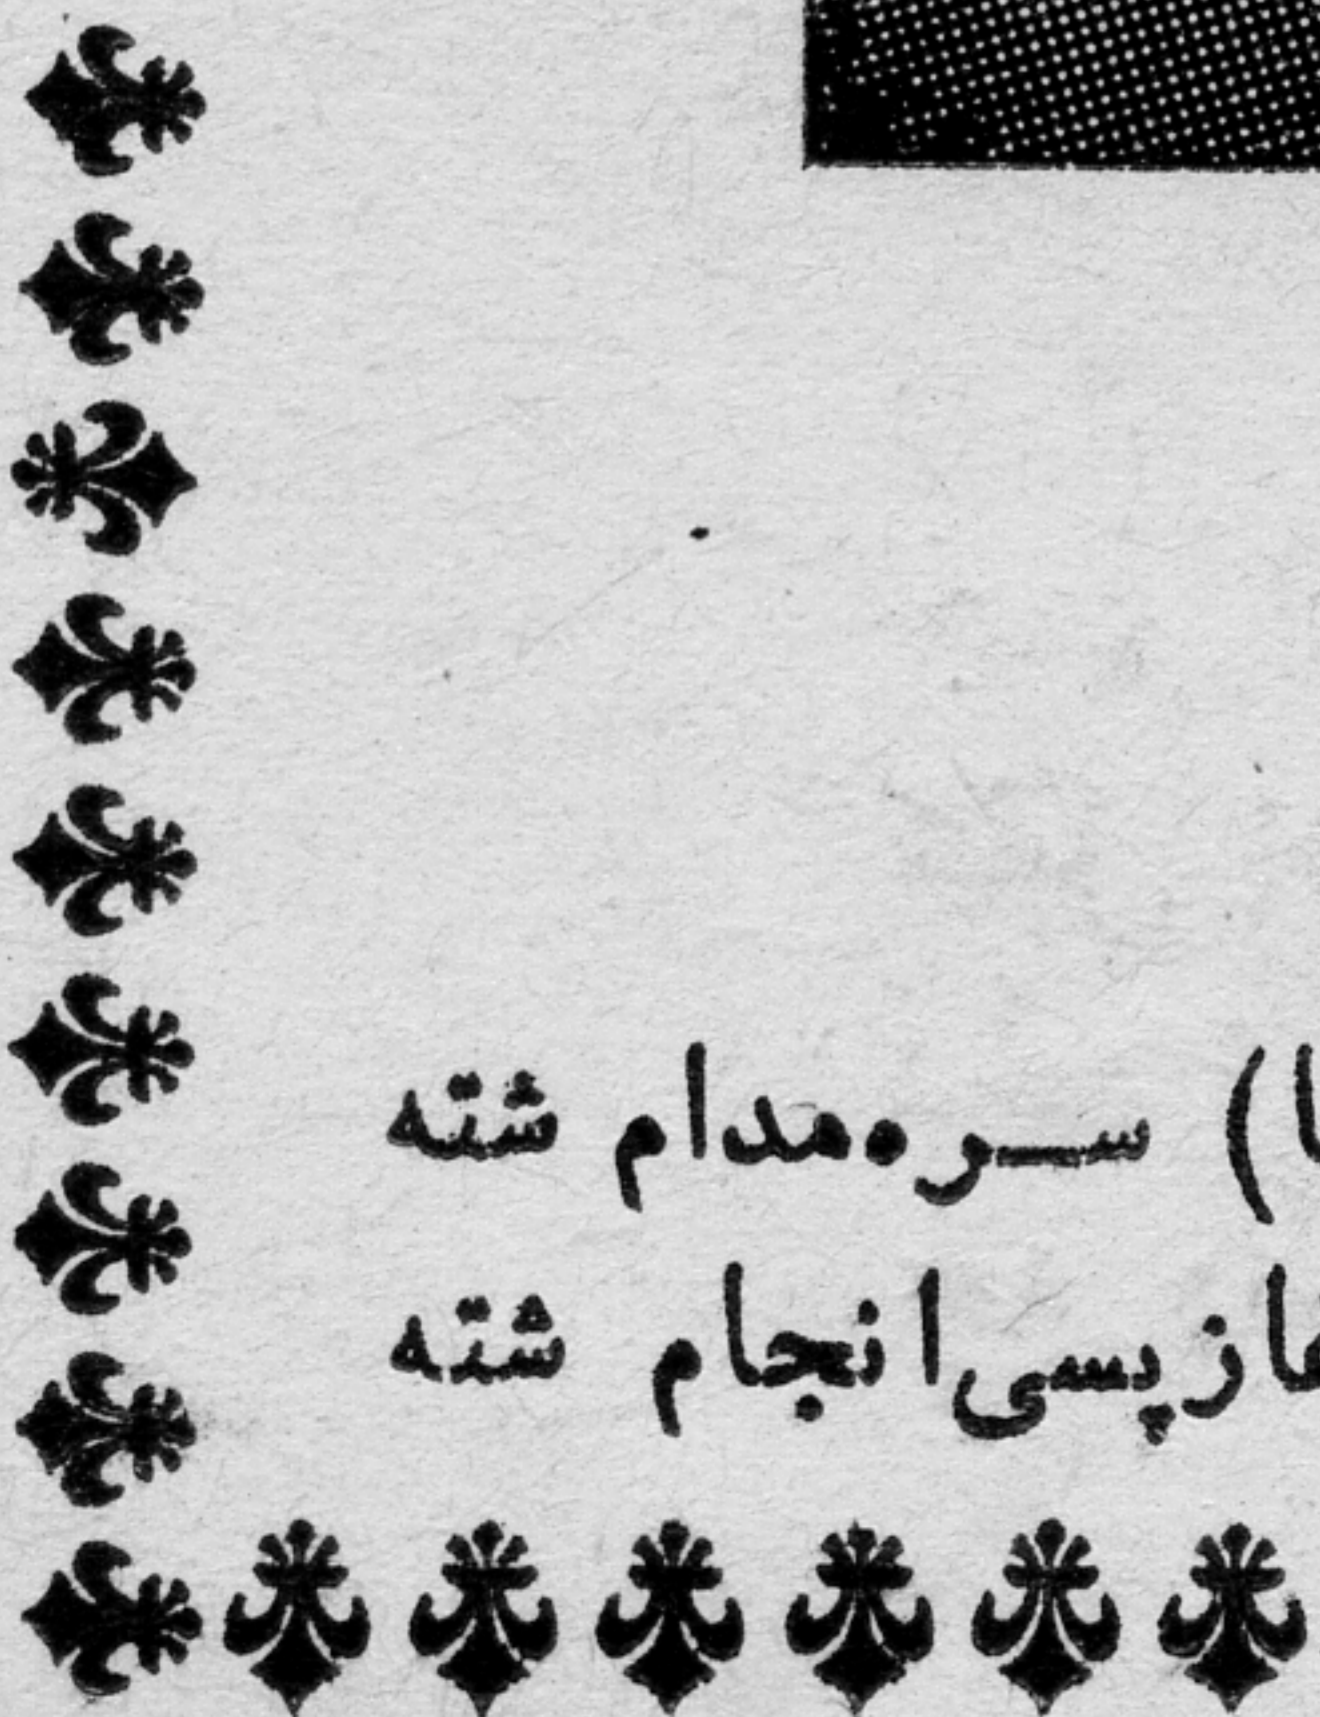 ) ســره‌مدام شته
از پسی انجام شته